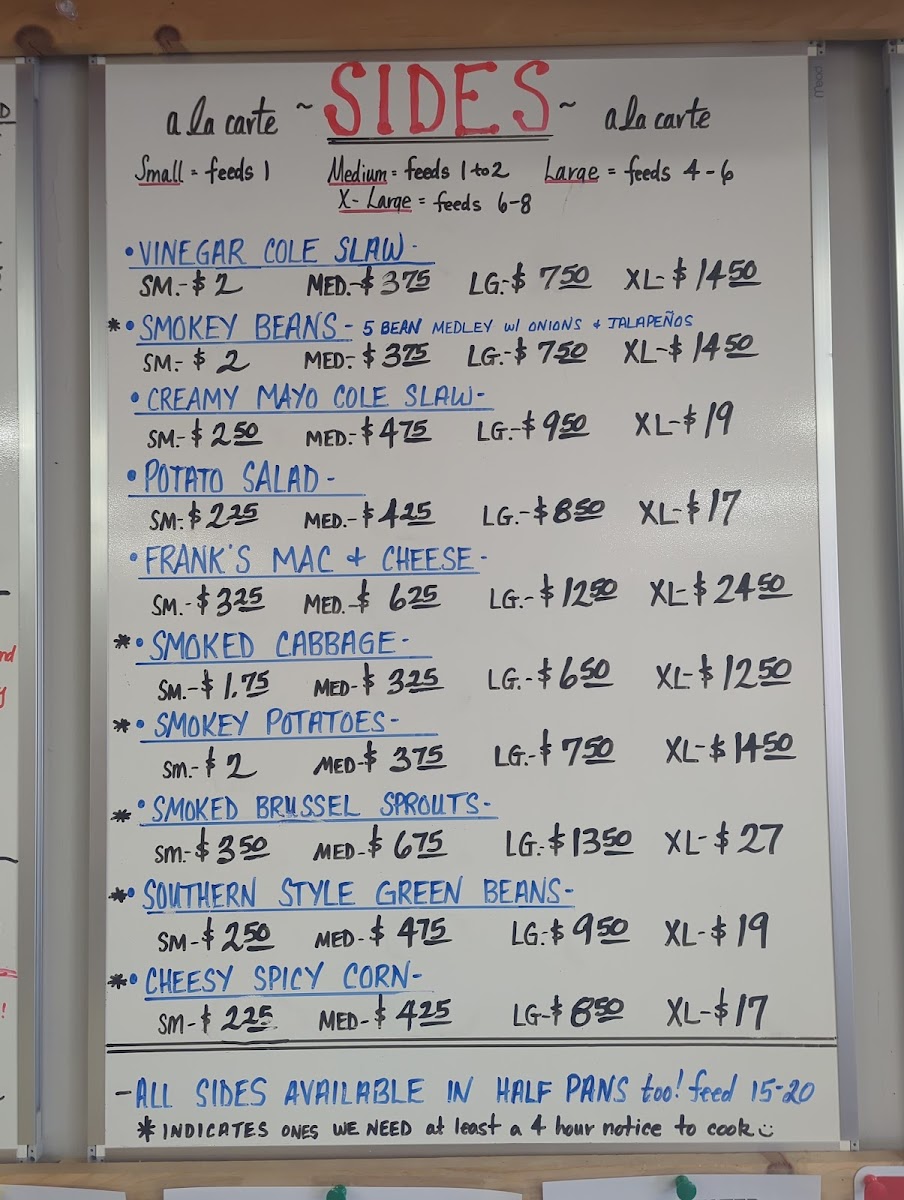 SIDES
a la carte ~ ~ a la carte
Small = feeds 1 Medium = feeds 1 to 2 Large = feeds 4-6
X-Large = feeds 6-8
• VINEGAR COLE SLAW -
SM.-$2 MED.-$3 75 LG.-$7 50 XL-$14 50
*• SMOKEY BEANS - 5 BEAN MEDLEY w/ ONIONS & JALAPEÑOS
SM.-$2 MED.-$3 75 LG.-$7 50 XL-$14 50
• CREAMY MAYO COLE SLAW-
SM.-$2 50 MED.-$4 75 LG.-$9 50 XL-$19
• POTATO SALAD -
SM.-$2 25 MED.-$4 25 LG.-$8 50 XL-$17
• FRANK'S MAC & CHEESE -
SM.-$3 25 MED.-$6 25 LG.-$12 50 XL-$24 50
*• SMOKED CABBAGE-
SM.-$1.75 MED-$3 25 LG.-$6 50 XL-$12 50
*• SMOKEY POTATOES-
SM.-$2 MED-$3 75 LG.-$7 50 XL-$14 50
*• SMOKED BRUSSEL SPROUTS-
SM.-$3 50 MED-$6 75 LG.-$13 50 XL-$27
*• SOUTHERN STYLE GREEN BEANS-
SM-$2 50 MED-$4 75 LG.-$9 50 XL-$19
*• CHEESY SPICY CORN-
SM-$2 25 MED-$4 25 LG-$8 50 XL-$17
-ALL SIDES AVAILABLE IN HALF PANS too! feed 15-20
* INDICATES ONES WE NEED at least a 4 hour notice to cook
Mead